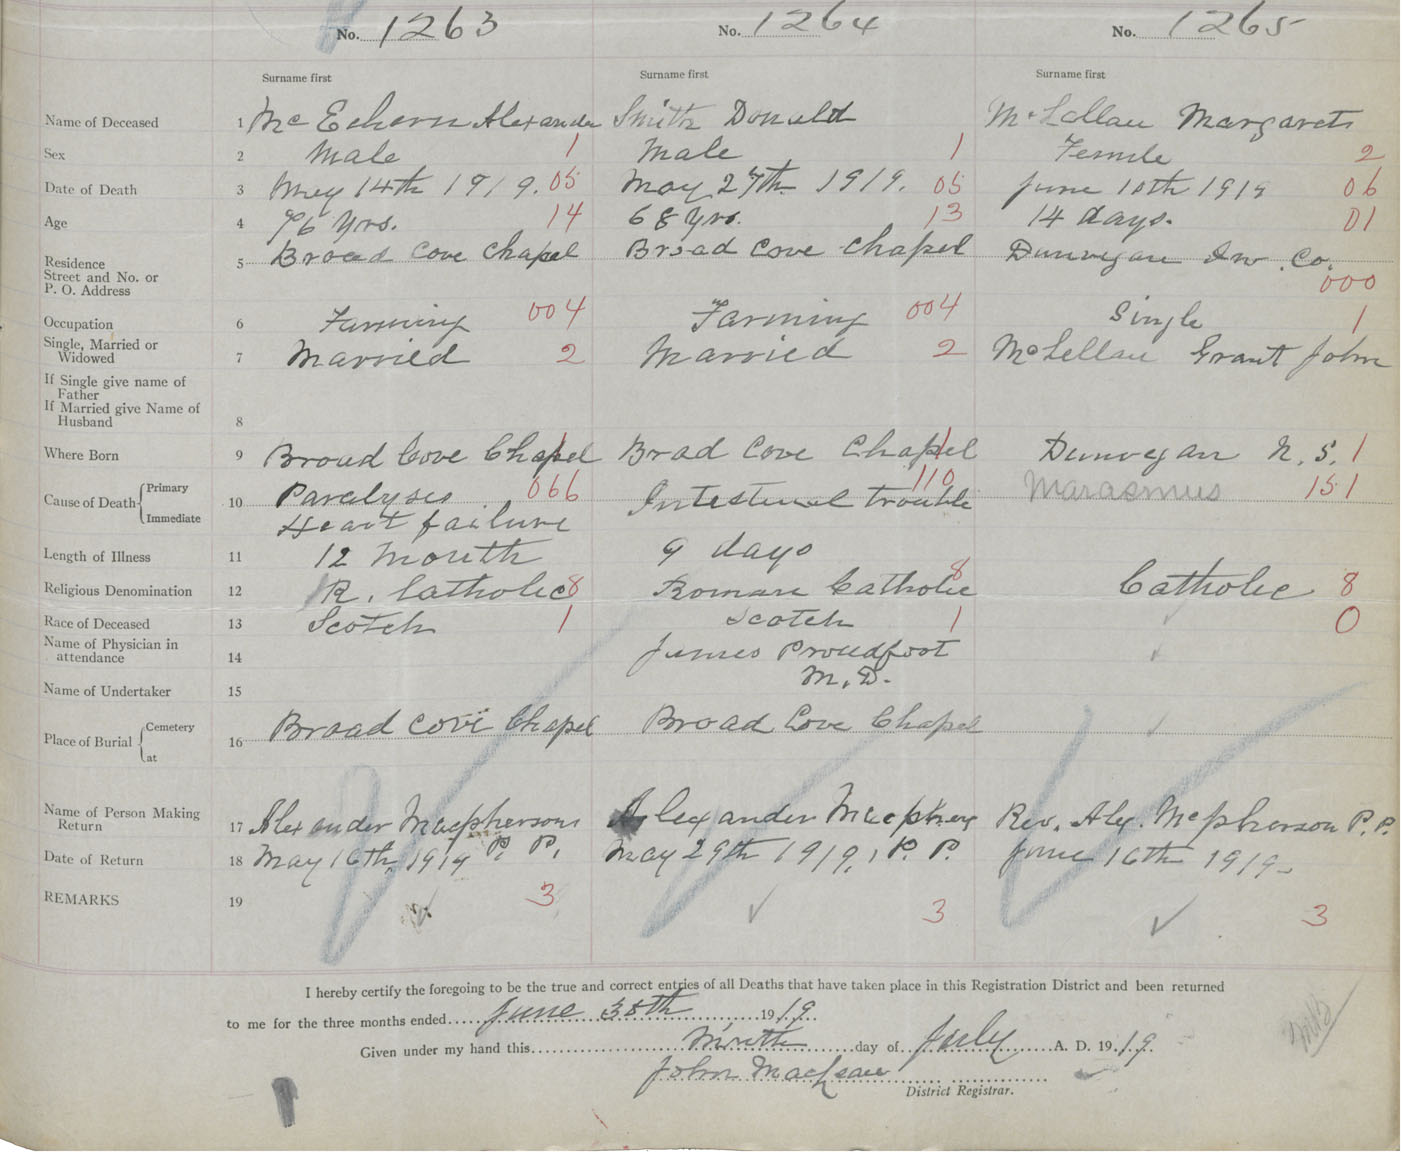 No. 1263 No. 1264 No. 1265
Surname first Surname first Surname first
Name of Deceased 1 Mc Echern Alexander Smith Donald McLellan Margaret
Sex 2 Male 1 Male 1 Female 2
Date of Death 3 May 14th 1919. 05 May 27th 1919. 05 June 10th 1919 06
Age 4 76 Yrs. 14 68 Yrs. 13 14 days. 01
Residence
Street and No. or
P. O. Address
5 Broad Cove Chapel Broad Cove Chapel Dunvegan Inv. Co.
000
Occupation 6 Farming 004 Farming 004 Single 1
Single, Married or
Widowed
7 Married 2 Married 2 McLellan Grant John
If Single give name of
Father
If Married give Name of
Husband
8
Where Born 9 Broad Cove Chapel 1 Brad Cove Chapel 1 Dunvegan N. S. 1
Cause of Death Primary
Immediate
10 Paralyses 066 Intestinal trouble 110 Marasmus 151
Heart failure
Length of Illness 11 12 Month 9 days
Religious Denomination 12 R. Catholic 8 Roman Catholic 8 Catholic 8
Race of Deceased 13 Scotch 1 Scotch 1 0
Name of Physician in
attendance
14 James Proudfoot
M. D.
Name of Undertaker 15
Place of Burial Cemetery
at
16 Broad Cove Chapel Broad Cove Chapel
Name of Person Making
Return
17 Alexander Macpherson Alexander Rev. Alex. McPherson P. P.
Date of Return 18 May 16th, 1919 P. P. May 29th 1919, P. P. June 16th 1919.
REMARKS 19 3 3 3
I hereby certify the foregoing to be the true and correct entries of all Deaths that have taken place in this Registration District and been returned
to me for the three months ended June 30th 1919.
Given under my hand this Nineth day of July A. D. 1919.
John MacLean
District Registrar.